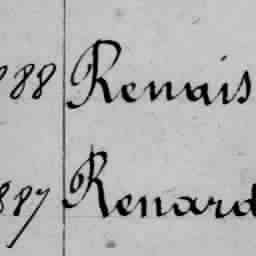 888 Renais
887 Renard